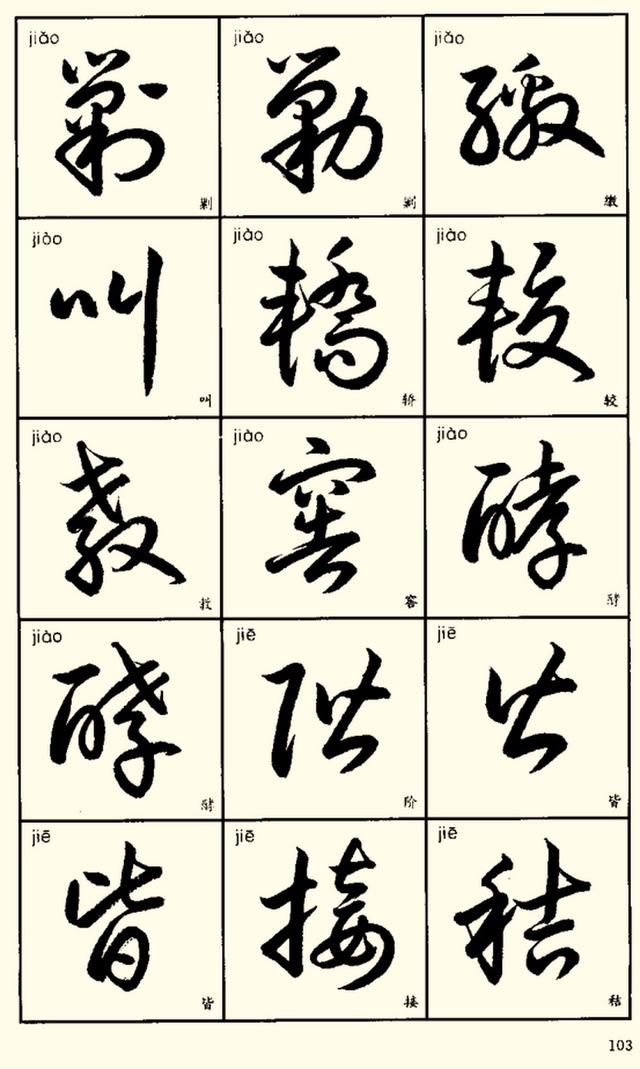 jiǎo jiǎo jiǎo
剿 剿 缴
jiào jiào jiào
叫 轿 较
jiào jiào jiào
教 窖 酵
jiào jiē jiē
酵 阶 皆
jiē jiē jiē
皆 接 秸
103